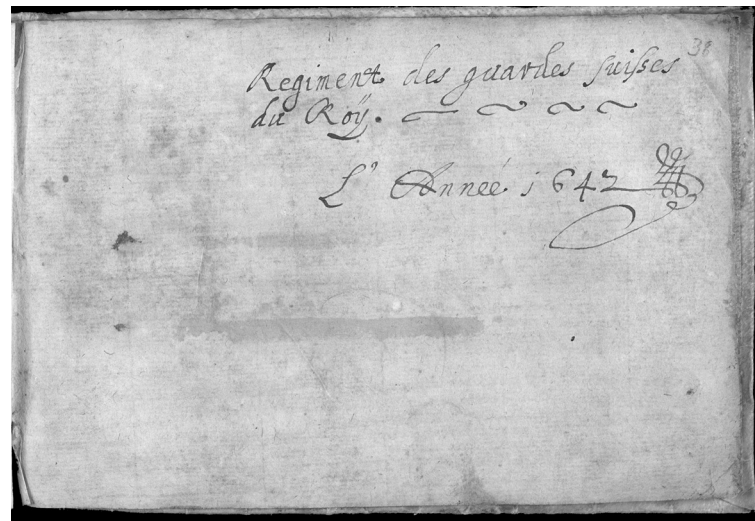 38
Regiment des guardes suisses
du Roÿ.
L' Anneé 1642